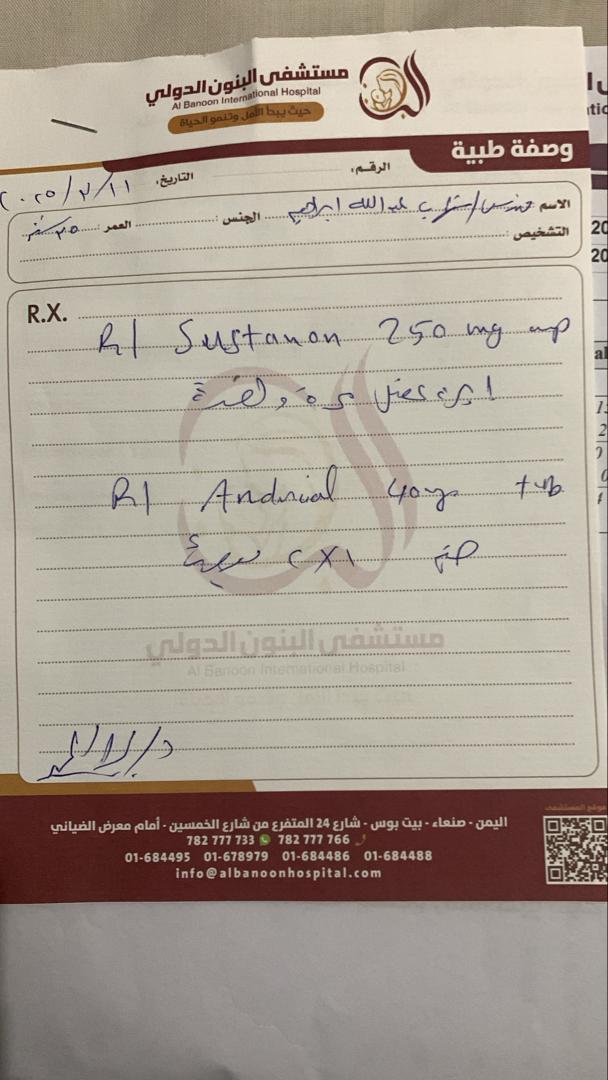 مستشفى البنون الدولي
Al Banoon International Hospital
حيث يبدأ الأمل وتنمو الحياة
وصفة طبية
الرقم:
التاريخ: ٢٠٢٥/٢/١١
الاسم عبدالله ابراهيم الجنس: العمر:
التشخيص:
R.X.
R/ Sustanon 250 mg amp
مرة واحدة
R/ 40mg tab
١×٢
مستشفى البنون الدولي
Al Banoon International Hospital
اليمن - صنعاء - بيت بوس - شارع 24 المتفرع من شارع الخمسين - أمام معرض الضياني
782 777 733 782 777 766
01-684495 01-678979 01-684486 01-684488
info@albanoonhospital.com
موقع المستشفى
20
20